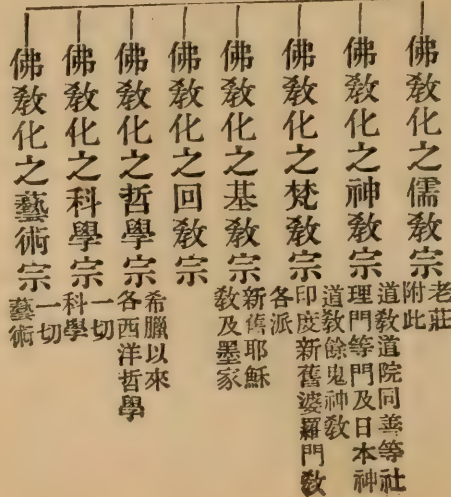 佛敎化之儒敎宗
老莊
附此
佛敎化之神敎宗
道敎道院同善等社
理門等門及日本神
道敎餘鬼神敎
佛敎化之梵敎宗
印度新舊婆羅門敎
各派
佛敎化之基敎宗
新舊耶穌
敎及墨家
佛敎化之回敎宗
佛敎化之哲學宗
希臘以來
各西洋哲學
佛敎化之科學宗
一切
科學
佛敎化之藝術宗
一切
藝術